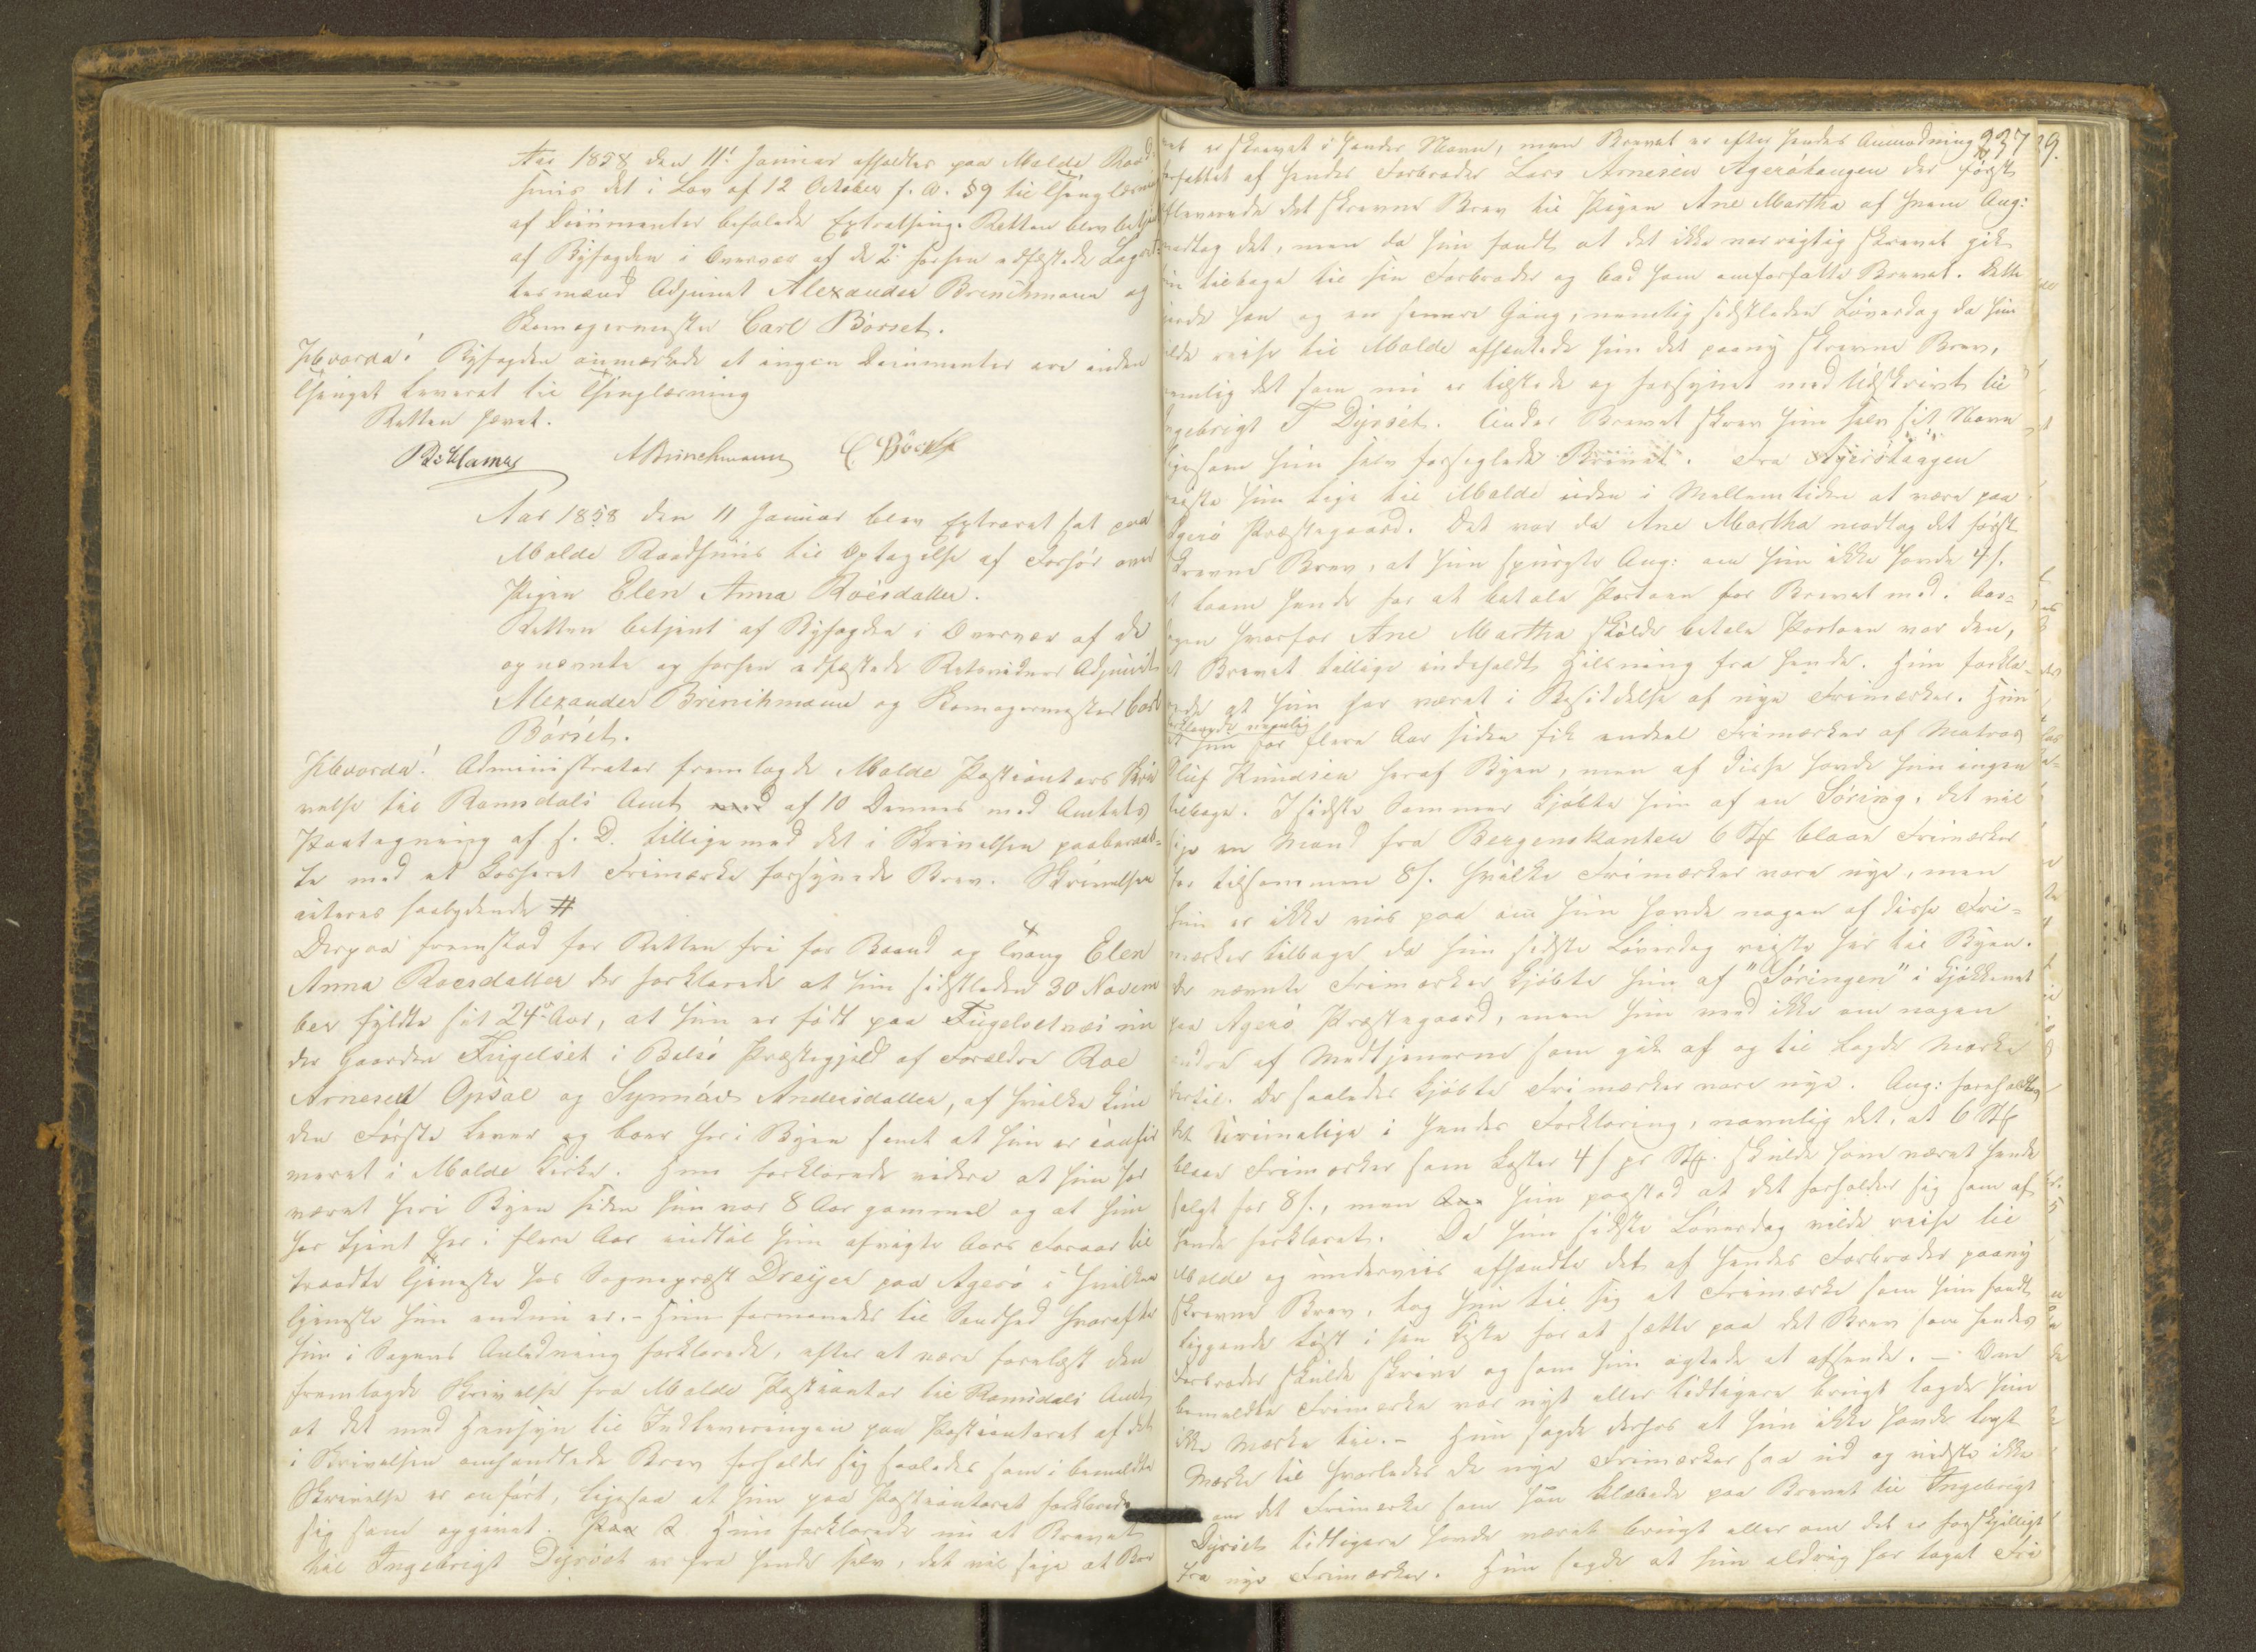 Aar 1858 den 11t Januar afholdtes paa Molde Raad-
huus det i Lov af 12 October f. A. §9 til Thinglæsning
af Documenter befalede Extrathing. Retten blev betjent
af Byfogden i Overvær af de 2de forhen edfæstede Laugret-
tesmænd Adjunct Alexander Brinchmann og
Skomagermester Carl Börset.
Hvorda! Byfogden anmærkede at ingen Documenter are inden
Thinget leveret til Thinglæsning
Retten hævet.
ABrinchmann C Börset
Aar 1858 den 11 Januar blev Extraret sat paa
Molde Raadhuus til Optagelse af Forhör over
Pigen Elen Anna Roësdatter.
Retten betjent af Byfogden i Overvær af de
opnævnte og forhen edfæstede Retsvidner Adjunct
Alexander Brinchmann og Skomagermester Carl
Börset.
Hvorda! Administrator fremlagde Molde Postcontors Skri
velse til Romsdals Amt med af 10 Dennes med Amtets
Paategning af s. D. tilligemed det i Skrivelsen paaberaab-
te med et Casseret Frimærke forsynede Brev. Skrivelsen
acteres saalydende #
Derpaa fremstod for Retten fri for Baand og Tvang Elen
Anna Roesdatter der forklarede at hun sidstleden 30 Novem
ber fyldte sit 24de Aar, at hun er födt paa Fugelsetnæs un
der Gaarden Fugelset i Bolsö Præstegjeld af Forældre Roe
Arnesen Opsal og Synnöve Andersdatter, af hvilke kun
den Förste lever og boer her i Byen samt at hun er confir
meret i Molde Kirke. Hun forklarede videre at hun har
været her i Byen siden hun var 8 Aar gammel og at hun
har tjent her i flere Aar indtil hun afvigte Aars Foraar til
traadte Tjeneste hos Sognepræst Dreyer paa Agerö i hvilken
Tjeneste hun endnu er. - Hun formanedes til Sandhed hvorefter
hun i Sagens Anledning forklarede, efter at være forelæst den
fremlagde Skrivelse fra Molde Postcontor til Romsdals Amt
at det med Hensyn til Indleveringen paa Postcontoret af det
i Skrivelsen omhandlede Brev forholder sig saaledes som i bemeldte
Skrivelse er anfört, ligesaa at hun paa Postcontoret forklarede
sig som opgivet. Hun forklarede nu at Brevet
til Ingebrigt Dyrset er fra hende selv, det vil sige at Bre
vet er skrevet i hendes Navn, men Brevet er efter hendes Anmodning 337
forfattet af hendes Farbroder Lars Arnesen Agerötangen der först
afleverede det skrevne Brev til Pigen Ane Martha af hvem Aug:
modtog det, men da hun fandt at det ikke var rigtig skrevet gik
hun tilbage til sin Farbroder og bad ham omforfatte Brevet. Dette
gjorde han og en senere Gang, nemlig sidstleden Löverdag da hun
vilde reise til Molde afhentede hun det paany skrevne Brev,
nemlig det som nu er tilstede og forsynet med Udskrivt til
Ingebrigt T Dyrset. Under Brevet skrev hun selv sit Navn
ligesom hun selv forseglede Brevet. Fra Agerötangen
reiste hun lige til Molde uden i Mellemtiden at være paa
Agerö Præstegaard. Det var da Ane Martha modtog det först
skrevne Brev, at hun spurgte Aug: om hun ikke havde 4 s.
at laane hende for at betale Portoen for Brevet med. Aar-
sagen hvorfor Ane Martha skulde betale Portoen var den,
at Brevet tillige indeholdt Hilsning fra hende. Hun forkla-
rede at hun har været i Besiddelse af nye Frimærker. Hun
forklarede nemlig
at hun for flere Aar siden fik endeel Frimærker af Matros
Oluf Knudsen heraf Byen, men af disse havde hun ingen
tilbage. I sidste Sommer kjöbte hun af en Söring, det vil
sige en Mand fra Bergenskanten 6 Stk blaae Frimærker
for tilsammen 8 s. hvilke Frimærker vare nye, men
hun er ikke vis paa om hun havde nogen af disse Fri-
mærker tilbage da hun sidste Löverdag reiste her til Byen.
De nævnte Frimærker kjöbte hun af "Söringen" i Kjökkenet
paa Agerö Præstegaard, men hun ved ikke om nogen
andre af Medtjenerne som gik af og til lagde Mærke
hertil. De saaledes kjöbte Frimærker vare nye. Aug: foreholdtes
det Urimelige i hendes Forklaring, navnlig det, at 6 Stk
blaae Frimærker som koster 4 s pr Stk. skulde have været hende
solgt for 8 s., men hun paastod at det forholder sig som af
hende forklaret. Da hun sidste Löverdag vilde reise til
Molde og underveis afhentede det af hendes Farbroder paany
skrevne Brev, tog hun til sig et Frimærke som hun fandt
liggende löst i sin Kiste for at sætte paa det Brev som hendes
Farbroder skulde skrive og som hun agtede at afsende. - Om
bemeldte Frimærke var nyt eller tidligere brugt lagde hun
ikke Mærke til. - Hun sagde derhos at hun ikke havde lagt
Mærke til hvorledes de nye Frimærker saa ud og vidste ikke
om det Frimærke som hun klæbede paa Brevet til Ingebrigt
Dyrset tidligere havde været brugt eller om det er forskjelligt
fra nye Frimærker. Hun sagde at hun aldrig har taget Fri